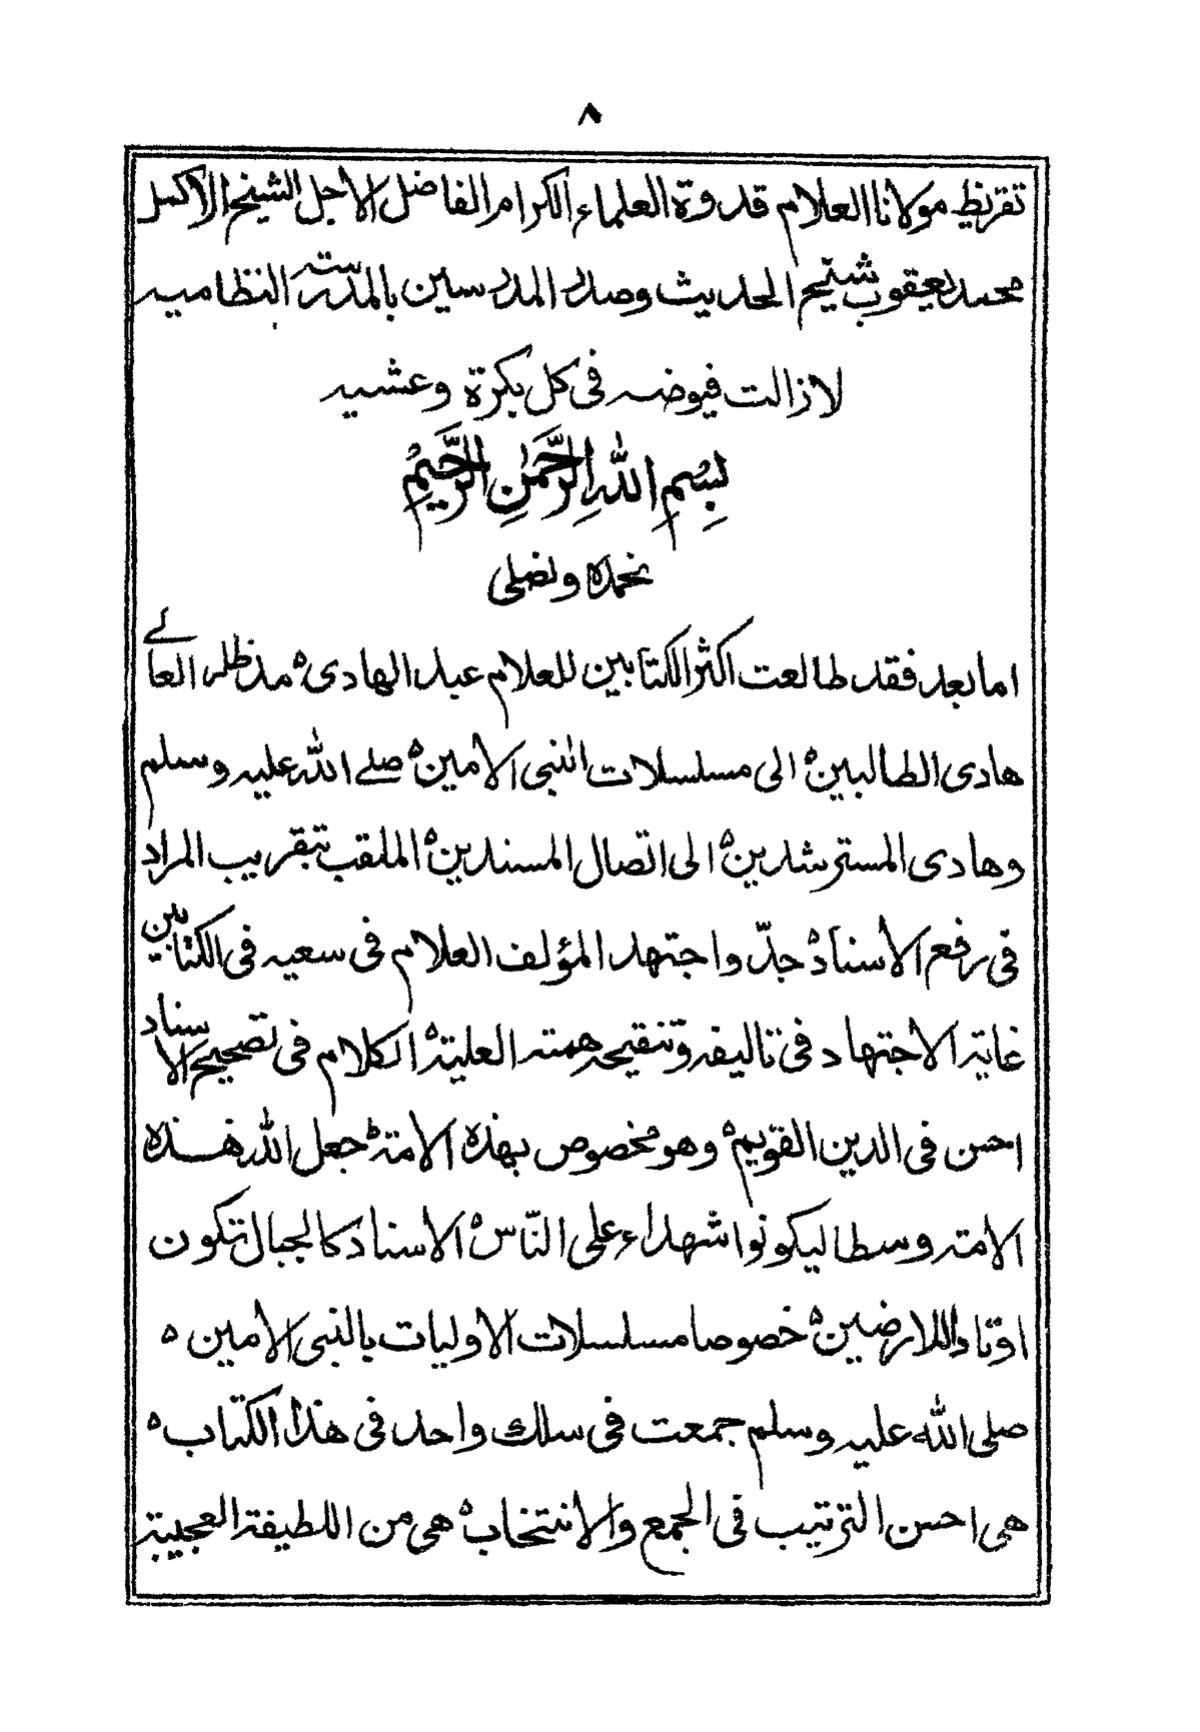 ٨
تقريظ مولانا العلام قدوة العلماء الكرام الفاضل الاجل الشيخ الاكمل
محمد يعقوب شيخ الحديث وصدر المدرسين بالمدرسة النظاميه
لا زالت فيوضه فى كل بكرة وعشيه
بِسْمِ اللهِ الرَّحْمٰنِ الرَّحِيْمِ
نحمده ونصلى
اما بعد فقد طالعت اكثر الكتابين للعلام عبد الهادى ه مد ظله العالے
هادى الطالبين ه الى مسلسلات النبى الامين ه صلے الله عليه وسلم
وهادى المسترشدين ه الى اتصال المسندين ه الملقب بتقريب المراد
فى رفع الأسناد ه جدّ واجتهد المؤلف العلام فى سعيه فى الكتابين
غاية الاجتهاد فى تاليفه وتنقيحه همته العلية ه الكلام فى تصحيح الاسناد
احسن فى الدين القويم ه وهو مخصوص بهذه الامة ط جعل الله هذه
الامته وسطا ليكونوا شهداء على النّاس ه الأسناد كالجبال تكون
اوتادا للارضين ه خصوصا مسلسلات الاوليات بالنبى الامين ه
صلى الله عليه وسلم جمعت فى سلك واحد فى هذا الكتاب ه
هى احسن الترتيب فى الجمع والانتخاب ه هى من اللطيفة العجيبة